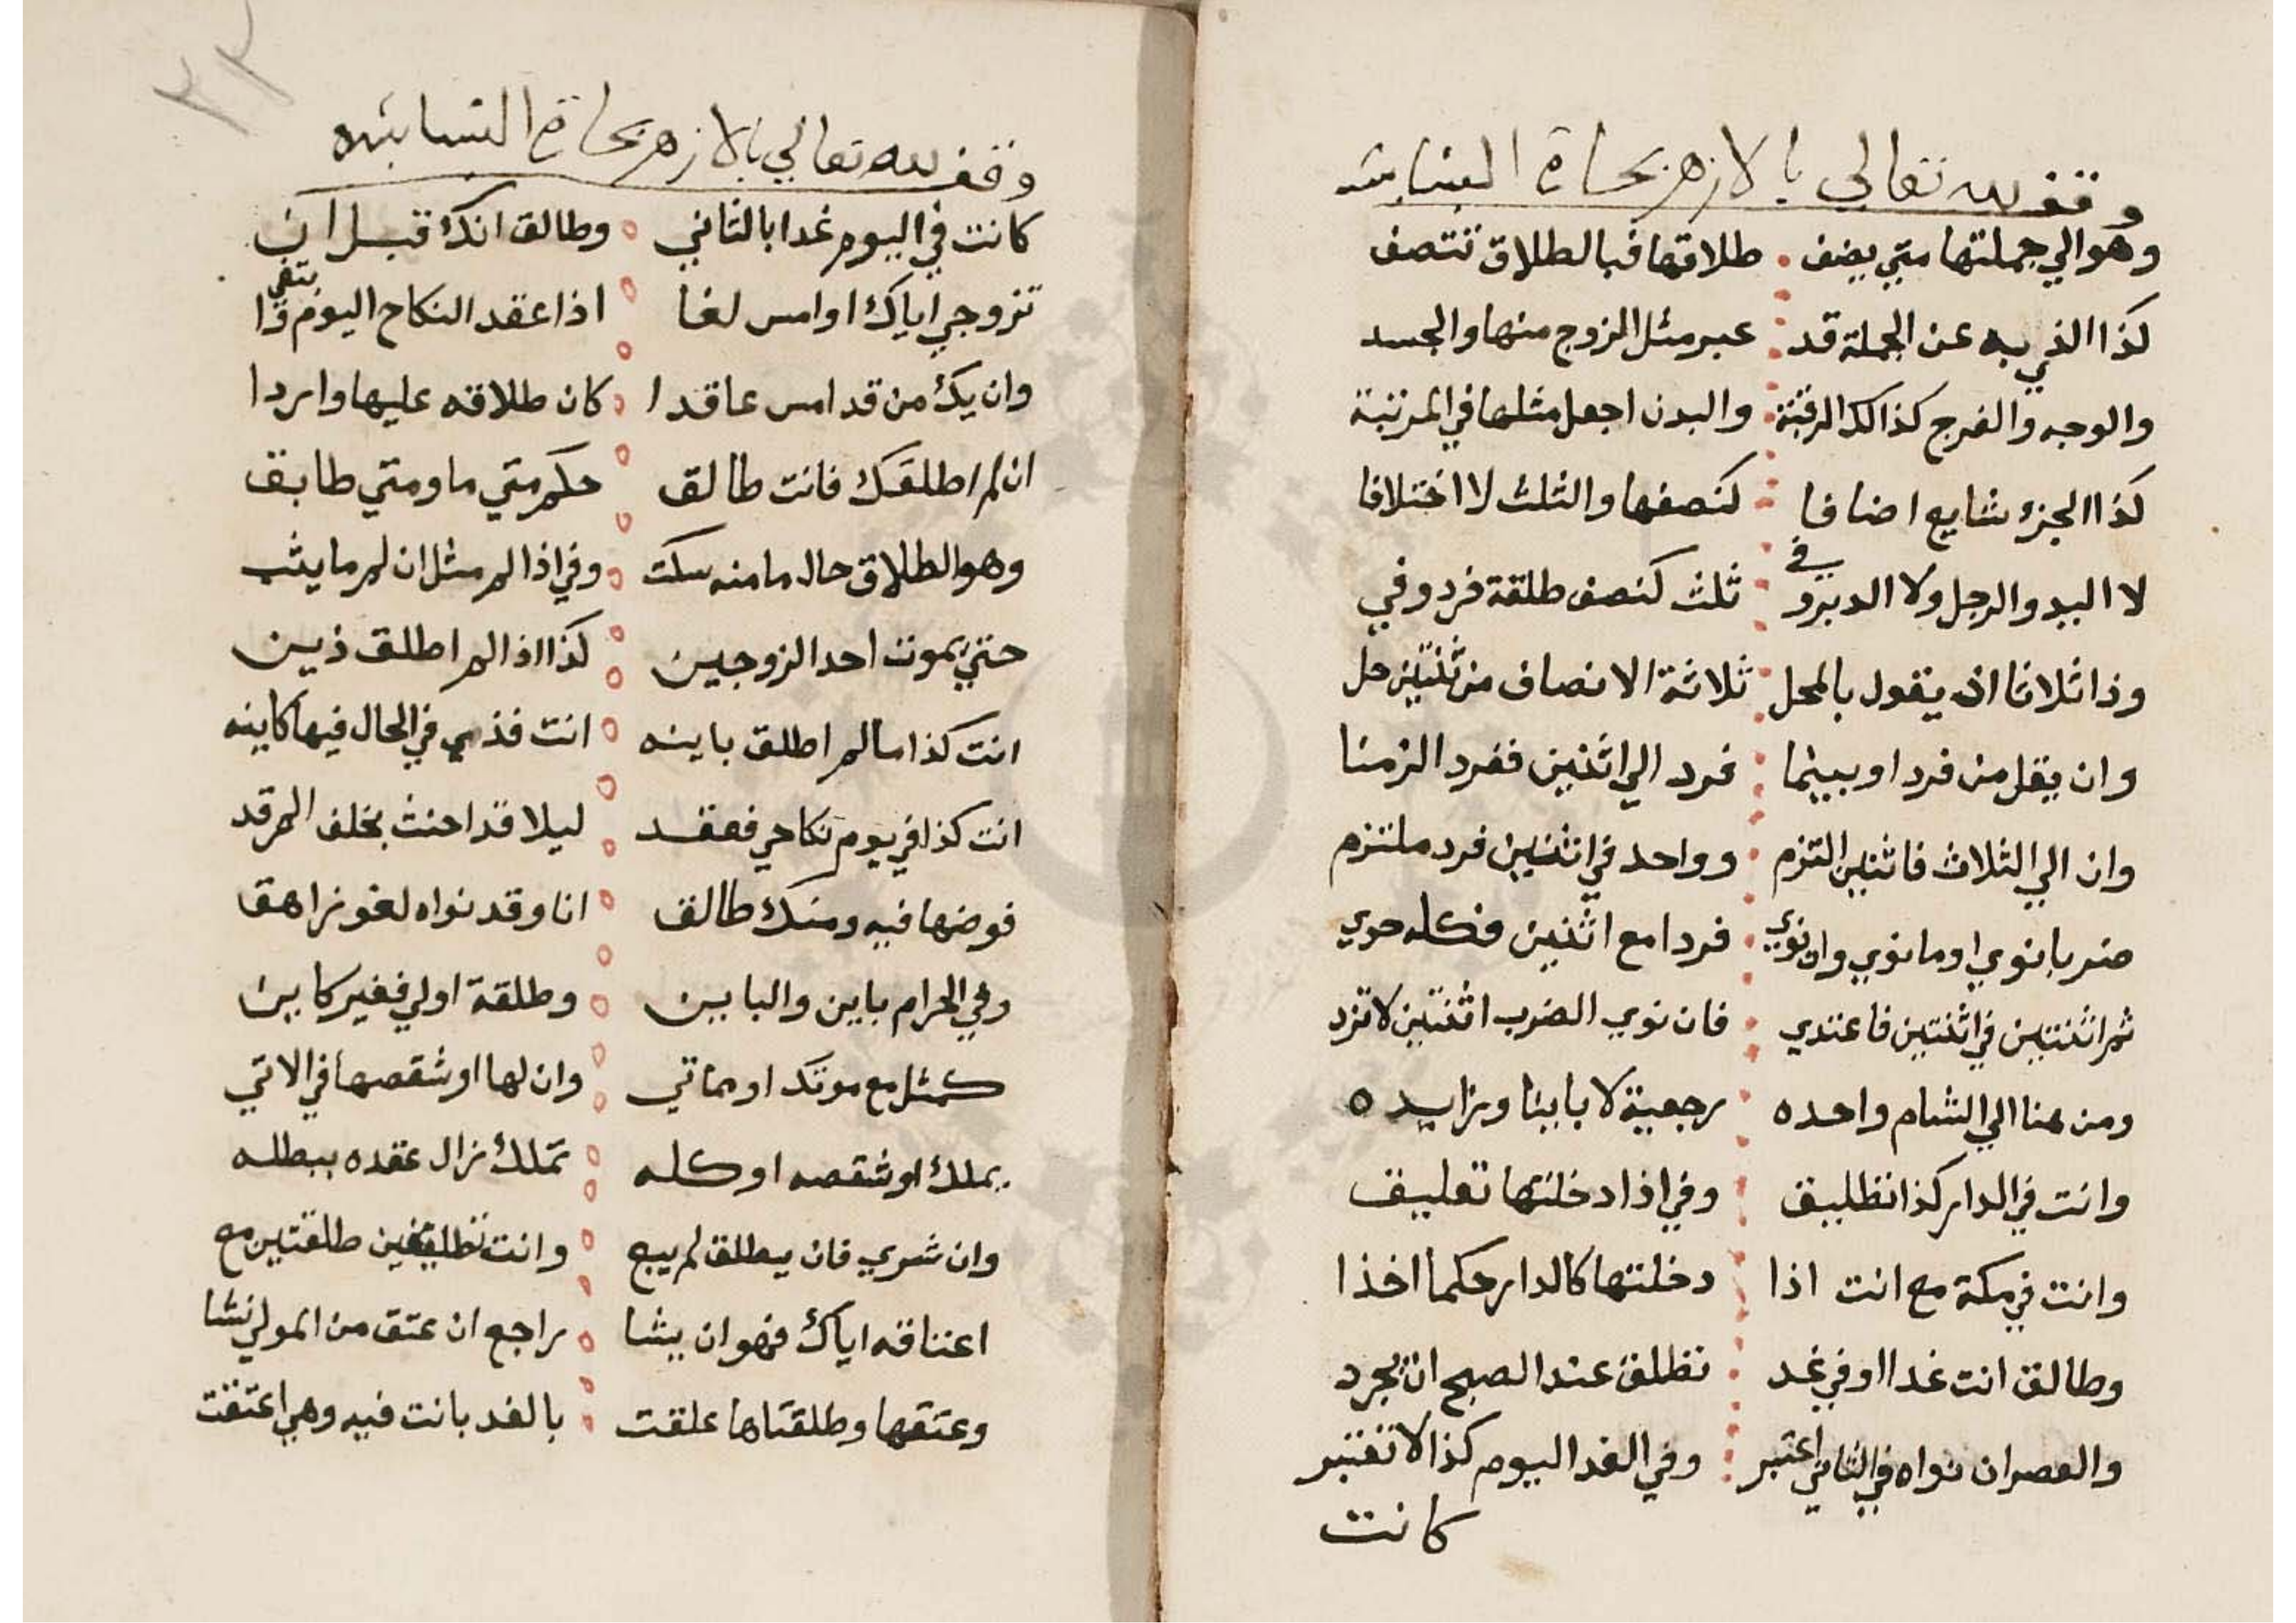 وقف لله تعالي بالازهر بحارة الشنابشه
وهو الي جملتها متي يضف • طلاقها فبالطلاق تتصف
كذا الذي به عن الجملة قد • عبر مثل الروح منها والجسد
والوجه والفرج كذالك الرقبة • والبدن اجعل مثلها في المرتبة
كذا الجزء شايع اضافا • كنصفها والثلث لا اختلافا
لا اليد والرجل ولا الدبر وفي • ثلث كنصف طلقة فرد وفي
وذا ثلاثا ان يقول بالمحل • ثلاثة الانصاف من ثنتين حل
وان يقل من فرد او بينما • فرد الي اثنين ففرد الزمنا
وان الي الثلاث فاثنين التزم • وواحد في اثنين فرد ملتزم
ضربا نوي او ما نوي وان نوي • فردا مع اثنين فكله حوي
ثم اثنتين في اثنتين فاعتدي • فان نوي الضرب اثنتين لا تزد
ومن هنا الي الشام واحده • رجعية لا باينا وزايده
وانت في الدار كذا تطليق • وفي اذا دخلتها تعليق
وانت في مكة مع انت اذا • دخلتها كالدار حكما اخذا
وطالق انت غدا او في غد • تطلق عند الصبح ان تجرد
والعصر ان نواه في الثاني اعتبر • وفي الغد اليوم كذا لا تفتبر
كانت
٢٣
وقف لله تعالي بالازهر بحارة الشنابشه
كانت في اليوم غدا بالثاني • وطالق انك قبل ان
تزوجي اياك او امس لغا • اذا عقد النكاح اليوم ذا يتغي
وان يك من قد امس عاقدا • كان طلاقه عليها واردا
ان لم اطلقك فانت طالق • حكم متي ما ومتي طابق
وهو الطلاق حال ما منه سكت • وفي اذا لم مثل ان لم ما يثب
حتي يموت احد الزوجين • كذا اذا لم اطلق ذين
انت كذا ما لم اطلق باينه • انت فذي في الحال فيها كاينه
انت كذا في يوم نكاحي فعقد • ليلا قد احنث بخلف المرقد
فوضها فيه ومنك طالق • انا وقد نواه لغو زاهق
وفي الحرام باين والباين • وطلقة اولي فغير كاين
كمثل مع موتك او مماتي • وان لها او شقصها في الاتي
يملك او شقصه او كله • تملك زال عقده ببطله
وان شري فان يطلق لم يبح • وانت تطليقتين طلقتين مع
اعتاقه اياك فهو ان يشا • راجع ان عتق من المولي نشا
وعتقها وطلقتاها علقت • بالغد بانت فيه وهي اعتقت